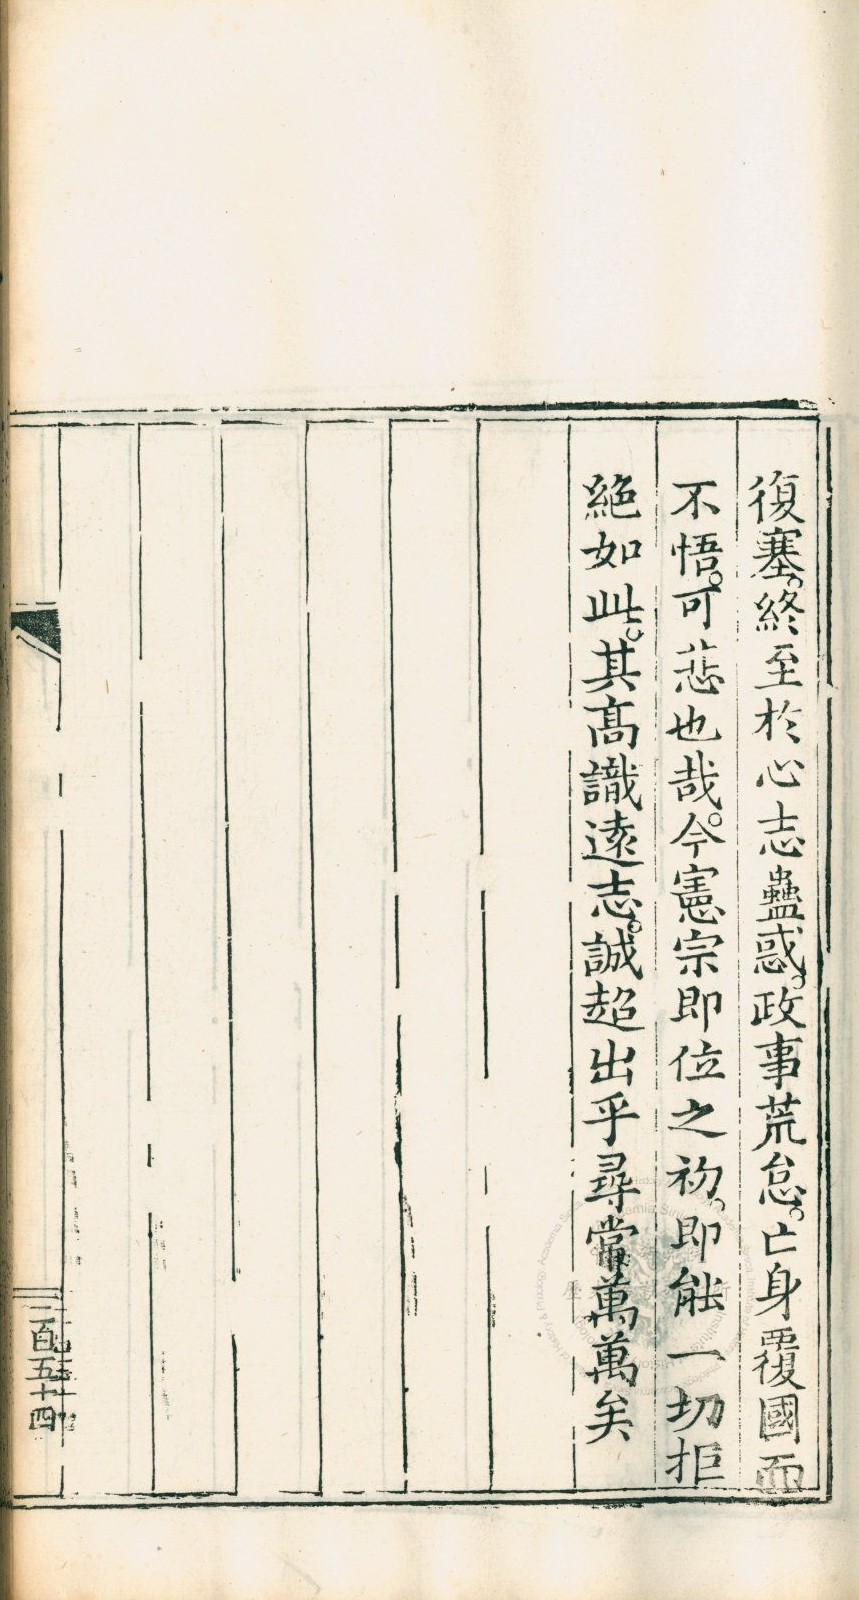 復塞。終至於心志蠱惑。政事荒怠。亡身覆國而
不悟。可悲也哉。今憲宗即位之初。即能一切拒
絶如此。其髙識遠志。誠超出乎尋常萬萬矣
二百五十四